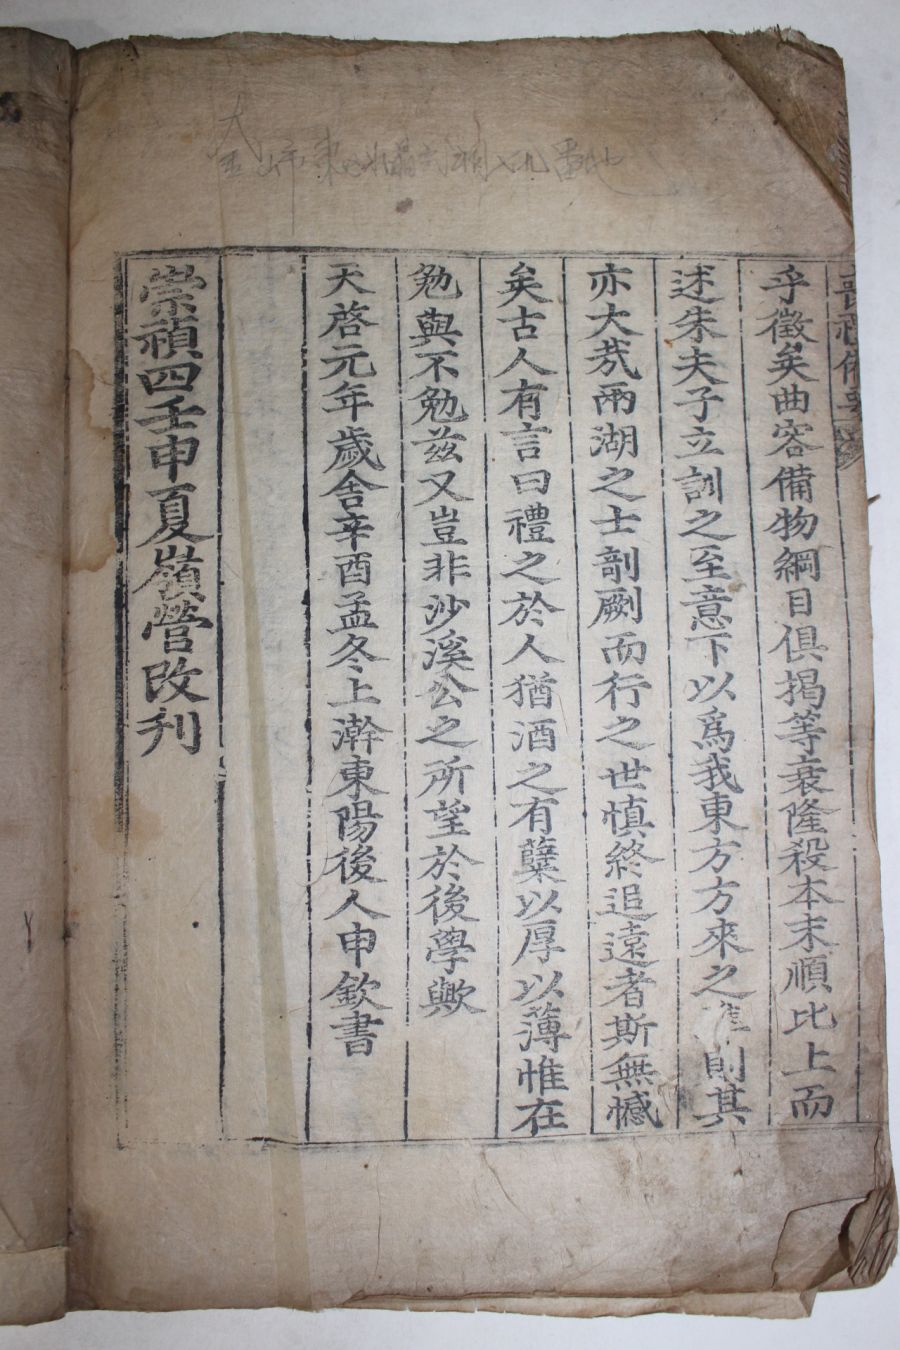 喪禮備要
乎徵矣曲容備物綱目俱揭等衰隆殺本末順比上而
述朱夫子立訓之至意下以爲我東方方來之準則其
亦大㢤兩湖之士剞劂而行之世愼終追遠者斯無憾
矣古人有言曰禮之於人猶酒之有蘖以厚以薄惟在
勉與不勉茲又豈非沙溪公之所望於後學歟
天啓元年歲舍辛酉孟冬上澣東陽後人申欽書
崇禎四壬申夏嶺營改刊